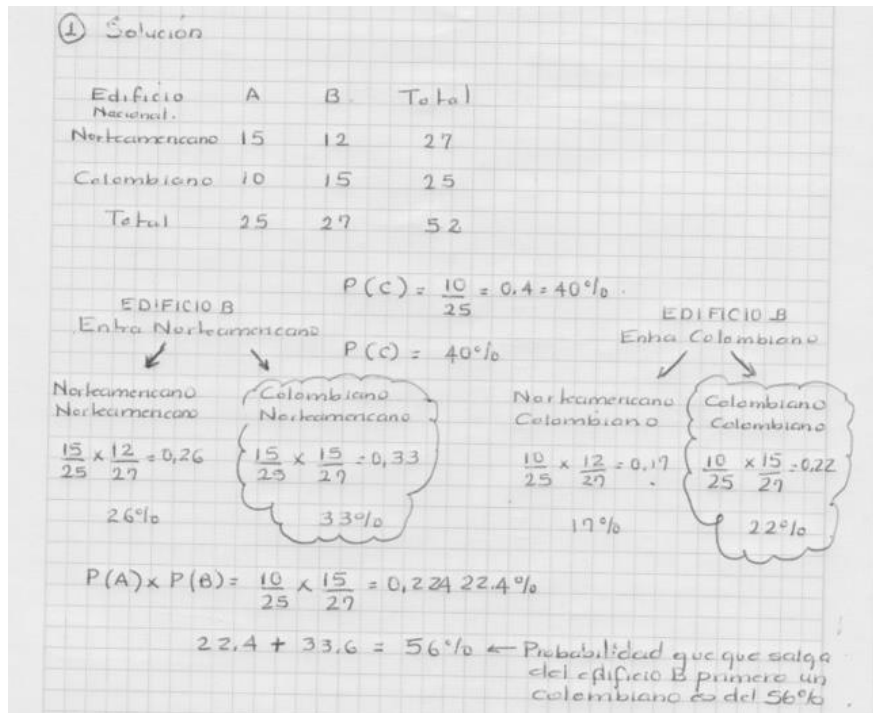 ① Solución
Edificio A B Total
Nacional.
Norteamericano 15 12 27
Colombiano 10 15 25
Total 25 27 52
P(C) = 10/25 = 0.4 = 40%.
P(C) = 40%
EDIFICIO B
Entra Norteamericano
Norteamericano
Norteamericano
15/25 × 12/27 = 0,26
26%
Colombiano
Norteamericano
15/25 × 15/27 = 0,33
33%
EDIFICIO B
Entra Colombiano
Norteamericano
Colombiano
10/25 × 12/27 = 0.17
17%
Colombiano
Colombiano
10/25 × 15/27 = 0,22
22%
P(A) × P(B) = 10/25 × 15/27 = 0,224 22.4%
22.4 + 33.6 = 56% ← Probabilidad que que salga
del edificio B primero un
colombiano es del 56%.